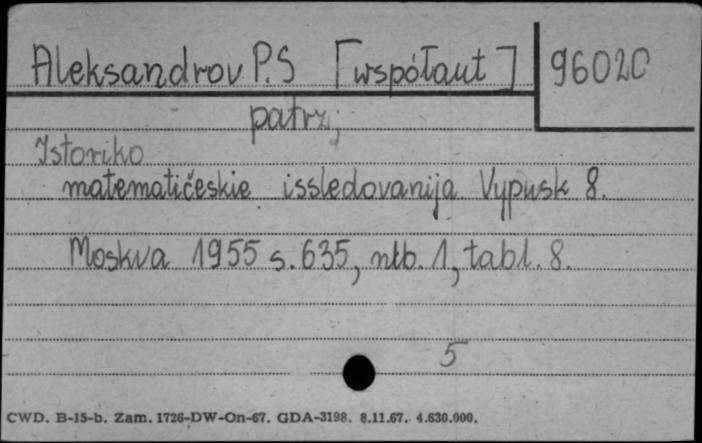 Aleksandrov P.S [współaut] 96020
patrz;
Istoriko
matematičeskie issledovanija Vypusk 8.
Moskva 1955 s. 635, nlb. 1, tabl. 8.
5
CWD. B-15-b. Zam. 1726-DW-On-67. GDA-3198. 8.11.67. 4.630.000.